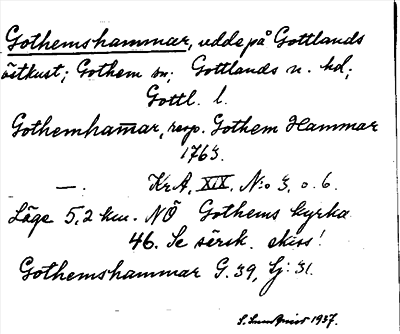 Gothemshammar, udde på Gottlands
östkust; Gothem sn; Gottlands n. hd;
Gottl. l.
Gothemham̅ar, resp. Gothem Hammar
1763.
—. KrA, XIX, N:o 3, o. 6.
Läge 5,2 km. NÖ Gothems kyrka
46. Se särsk. skiss!
Gothemshammar G. 39, Lj: 31.
1937.